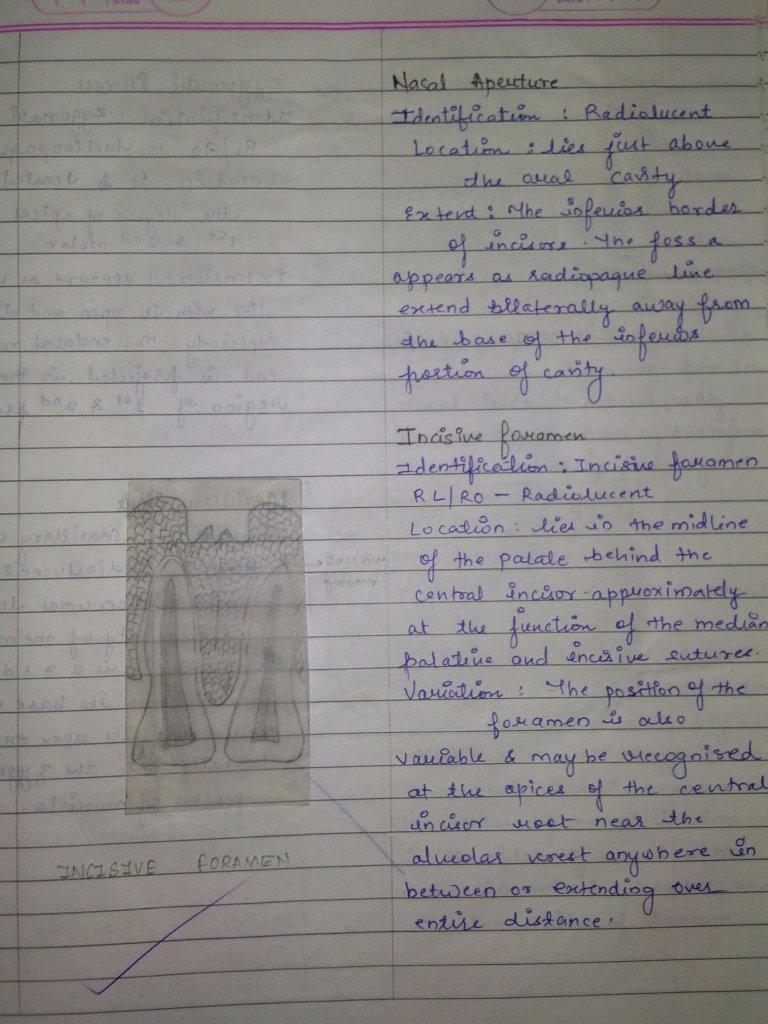 Nasal Aperture
Identification : Radiolucent
Location : lies just above
the oral cavity
Extent : The inferior border
of incisors. The foss a
appears as radiopaque line
extend bilaterally away from
the base of the inferior
portion of cavity.
Incisive foramen
Identification : Incisive foramen
RL/RO - Radiolucent
Location : lies in the midline
of the palate behind the
central incisor approximately
at the function of the median
palatine and incisive sutures.
Variation : The position of the
foramen is also
variable & may be recognised
at the apices of the central
incisor root near the
alveolar crest anywhere in
between or extending over
entire distance.
INCISIVE FORAMEN